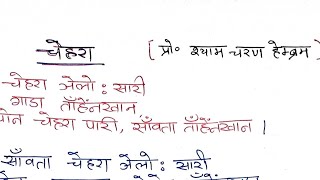 चेहरा [ प्रो॰ श्याम चरण हेम्ब्रम
चेहरा ञेलो : सारी
गाडा ताँहेंनखान,
चेहरा पारी, साँवता ताँहेंनखान ।
साँवता चेहरा ञेलो : सारी